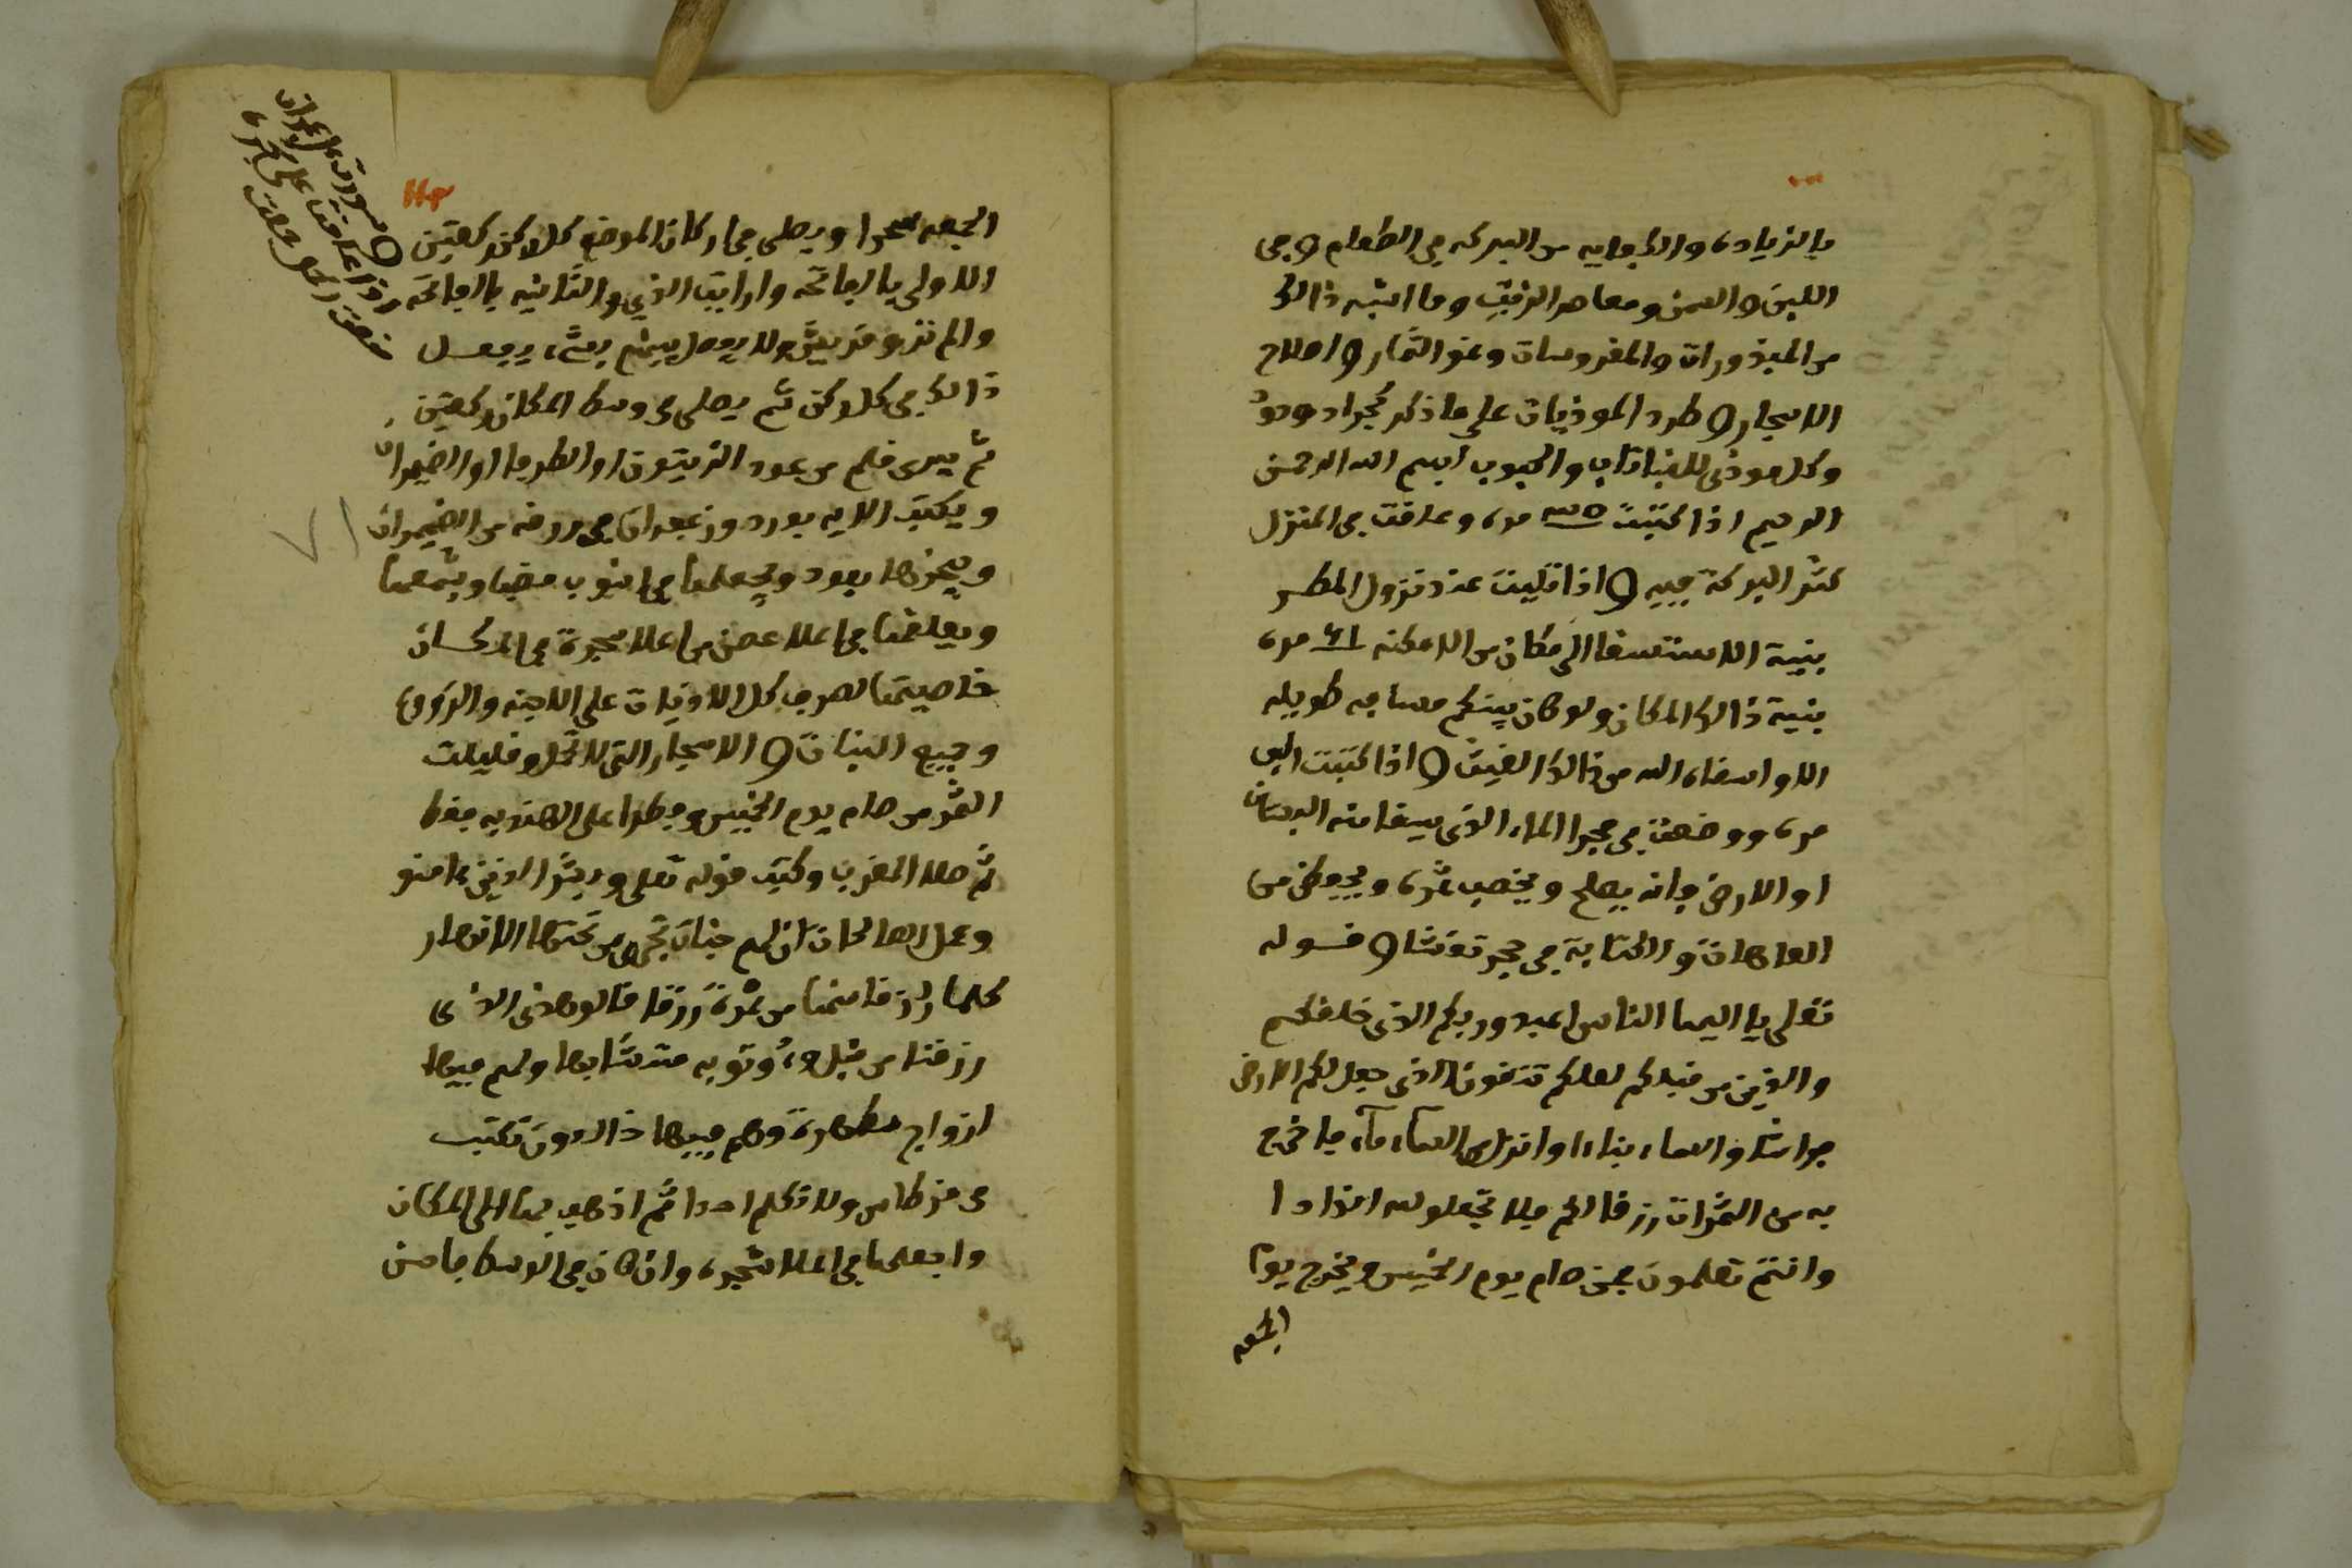 بالزياده والكفايه من البركه في الطعام وفي
اللبن والسمن ومعاصر الزيت وما اشبه ذالك
من المبذورات والمغروسات ونمو الثمار واصلاح
الاشجار وطرد الموذيات على ما ذكر كجراد ودود
وكل موذى للنباتات والحبوب ابسم الله الرحمن
الرحيم اذا كتبت مره وعلقت في المنزل
كثر البركة فيه واذا تليت عند نزول المطر
بنية الاستسقا الى مكان من الامكنه ٦١ مره
بنية ذالك المكان ولو كان بينكم مسافه طويله
الا واسقاه الله من ذالك الغيث واذا كتبت الف
مره ووضعت في مجرا الماء الذى يسقا منه البستان
او الارض فانه يصلح ويخصب ثمره ويحفظ من
العاهات والكتابة في حجر تقتشا وقوله
تعلى يا اليها الناس اعبدو ربكم الذى خلقكم
والذين من قبلكم لعلكم تتقون الذى جعل لكم الارض
فراشا والسماء بناءا وانزل من السماء ماء فاخرج
به من الثمرات رزقا لكم فلا تجعلو لله اندادا
وانتم تعلمون فمن صام يوم الخميس ويخرج يوم
الجمعه
الجمعه سحرا ويصلى في اركان الموضع كل ركن ركعتين
الاولى بالفاتحه وارايت الذي والثانيه بالفاتحه
والم تر وقريش ولا يفصل بينهم بشيء يفعل
ذالك في كل ركن ثم يصلى في وسط المكان ركعتين
ثم يبرى قلم من عود الزيتون او الطرفا او الضيمران
ويكتب الايه بورد وزعفران في ورقه من الضيمران
ويبخرها بعود ويجعلها في انبوب قصبا ويشمعها
ويعلقها في اعلا غصن من اعلا شجرة في المكان
خاصيتها لصرف كل الافات على الاجنه والزروع
وجميع النبات والاشجار التى لا تحمل وقليلت
الثمر من صام يوم الخميس وفطرا على الهندبه فقط
ثم صلا المغرب وكتب قوله تعلى وبشر الذين ءامنو
وعملو الصالحات ان لهم جنات تجري من تحتها الانهار
كلما رزقا منها من ثمرة رزقا قالو هذى الذى
رزقنا من قبل واوتو به متشابها ولهم فيها
ازواج مطهرة وهم فيها خالدون تكتب
فى قرطاس ولا تكلم احدا ثم اذهب بها الى المكان
واجعلها في اعلا شجره وان كان في الوسط فاحسن